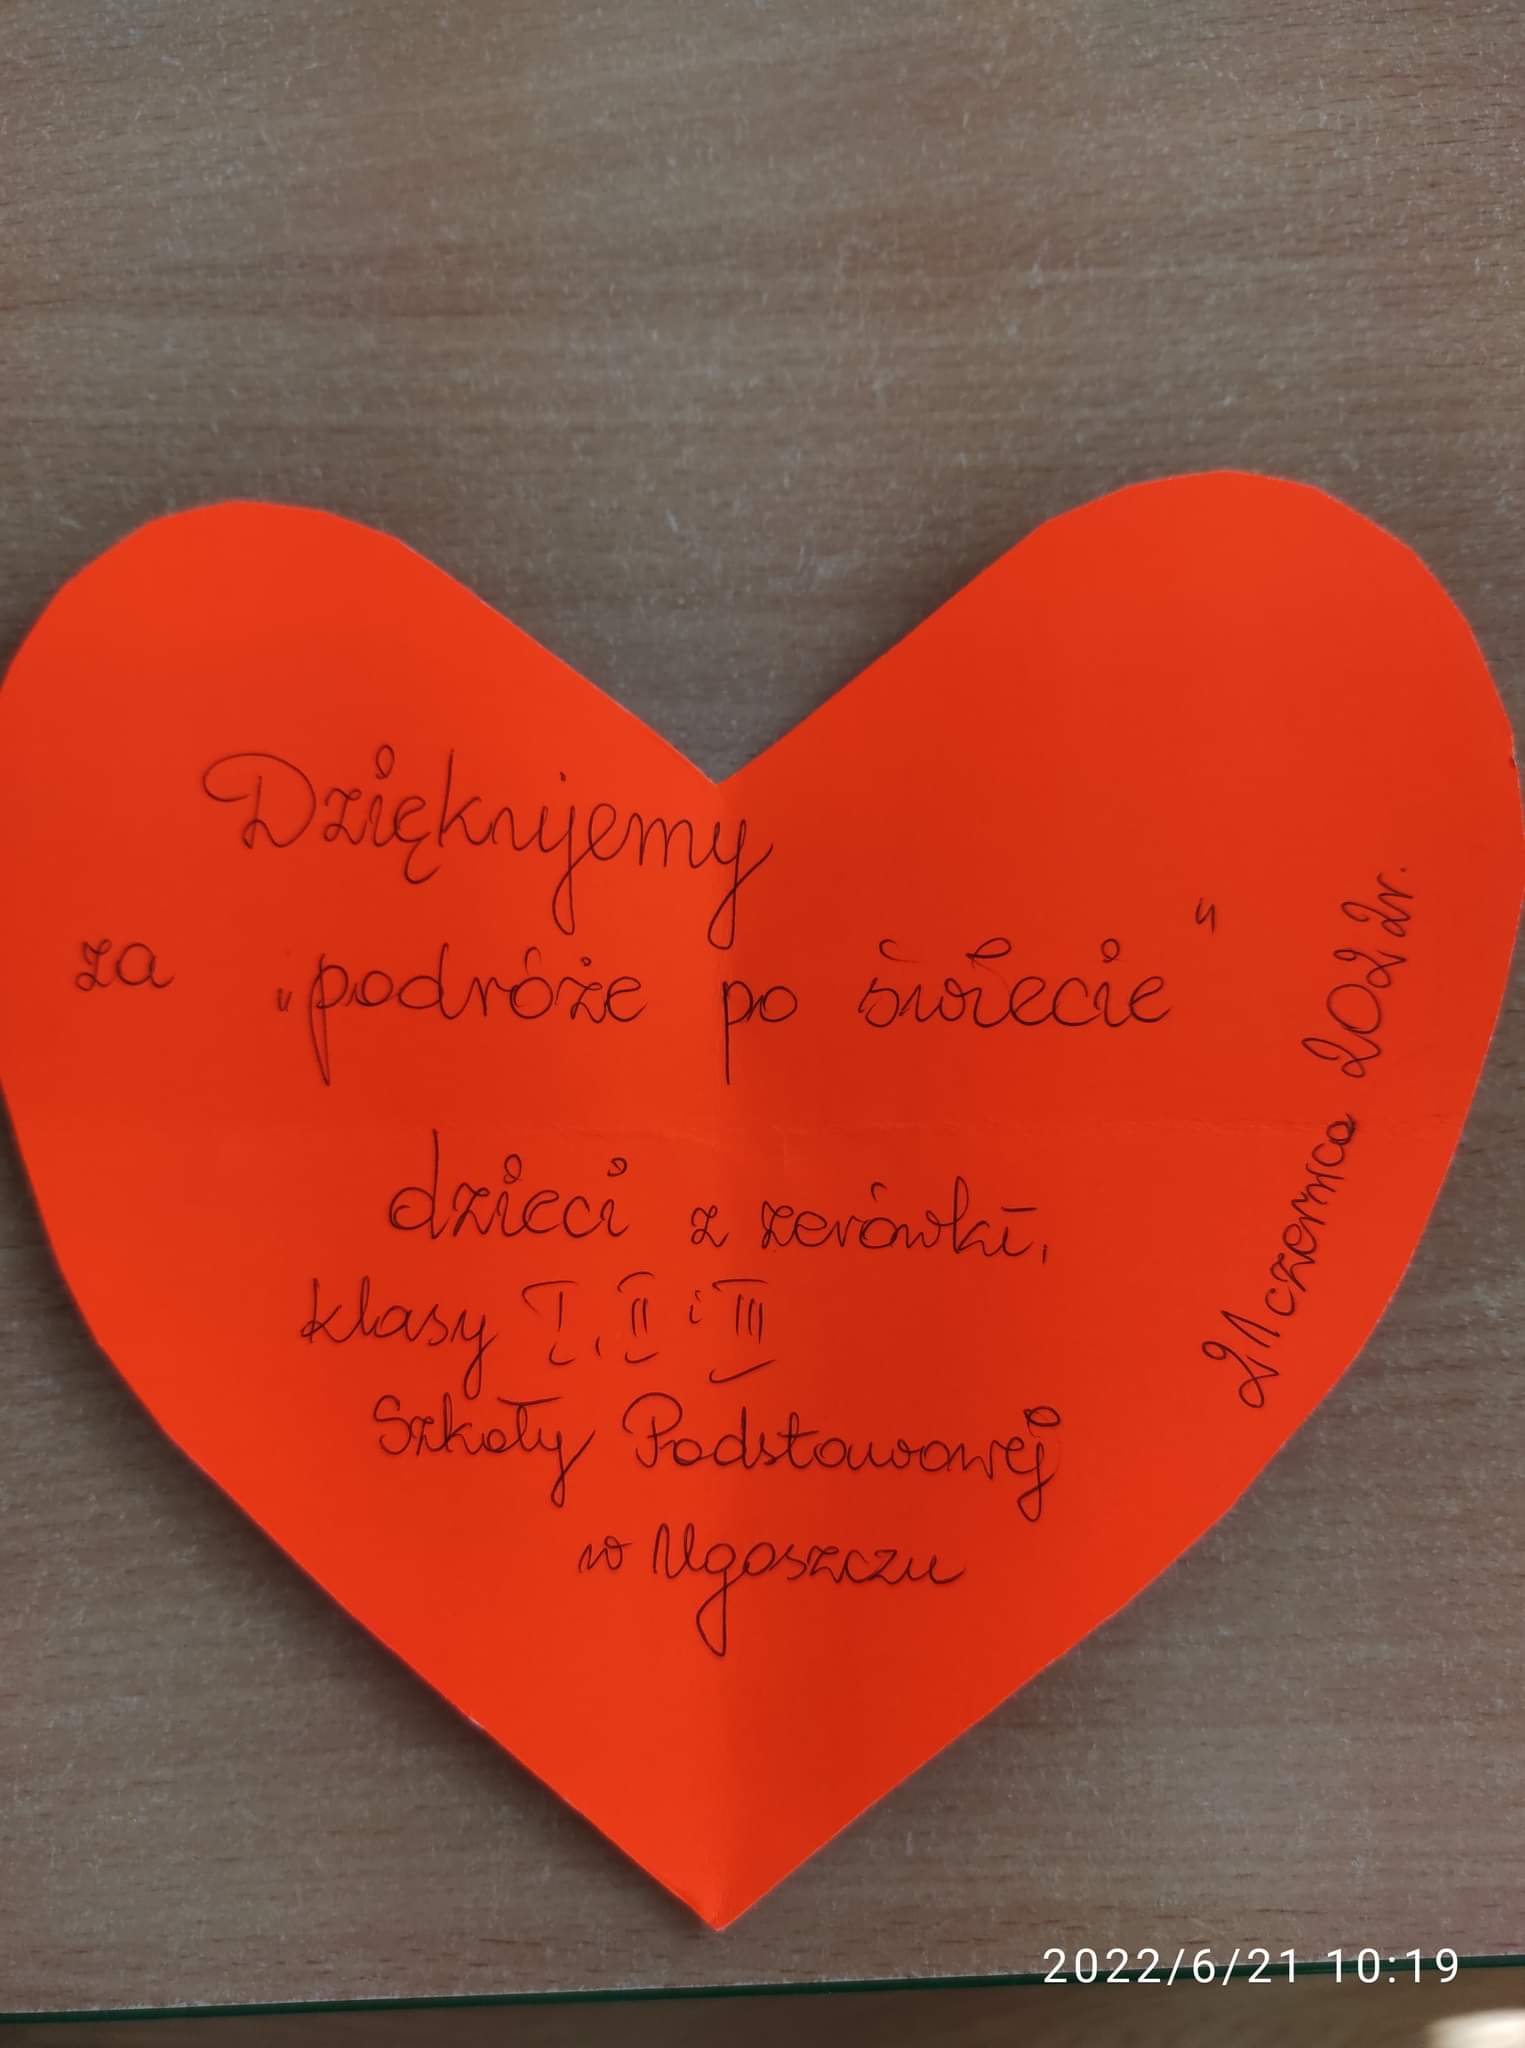 Dziękujemy
za „podróże po świecie"
dzieci z zerówki,
klasy I, II i III
Szkoły Podstawowej
w Ugoszczu
21 czerwca 2022r.
2022/6/21 10:19